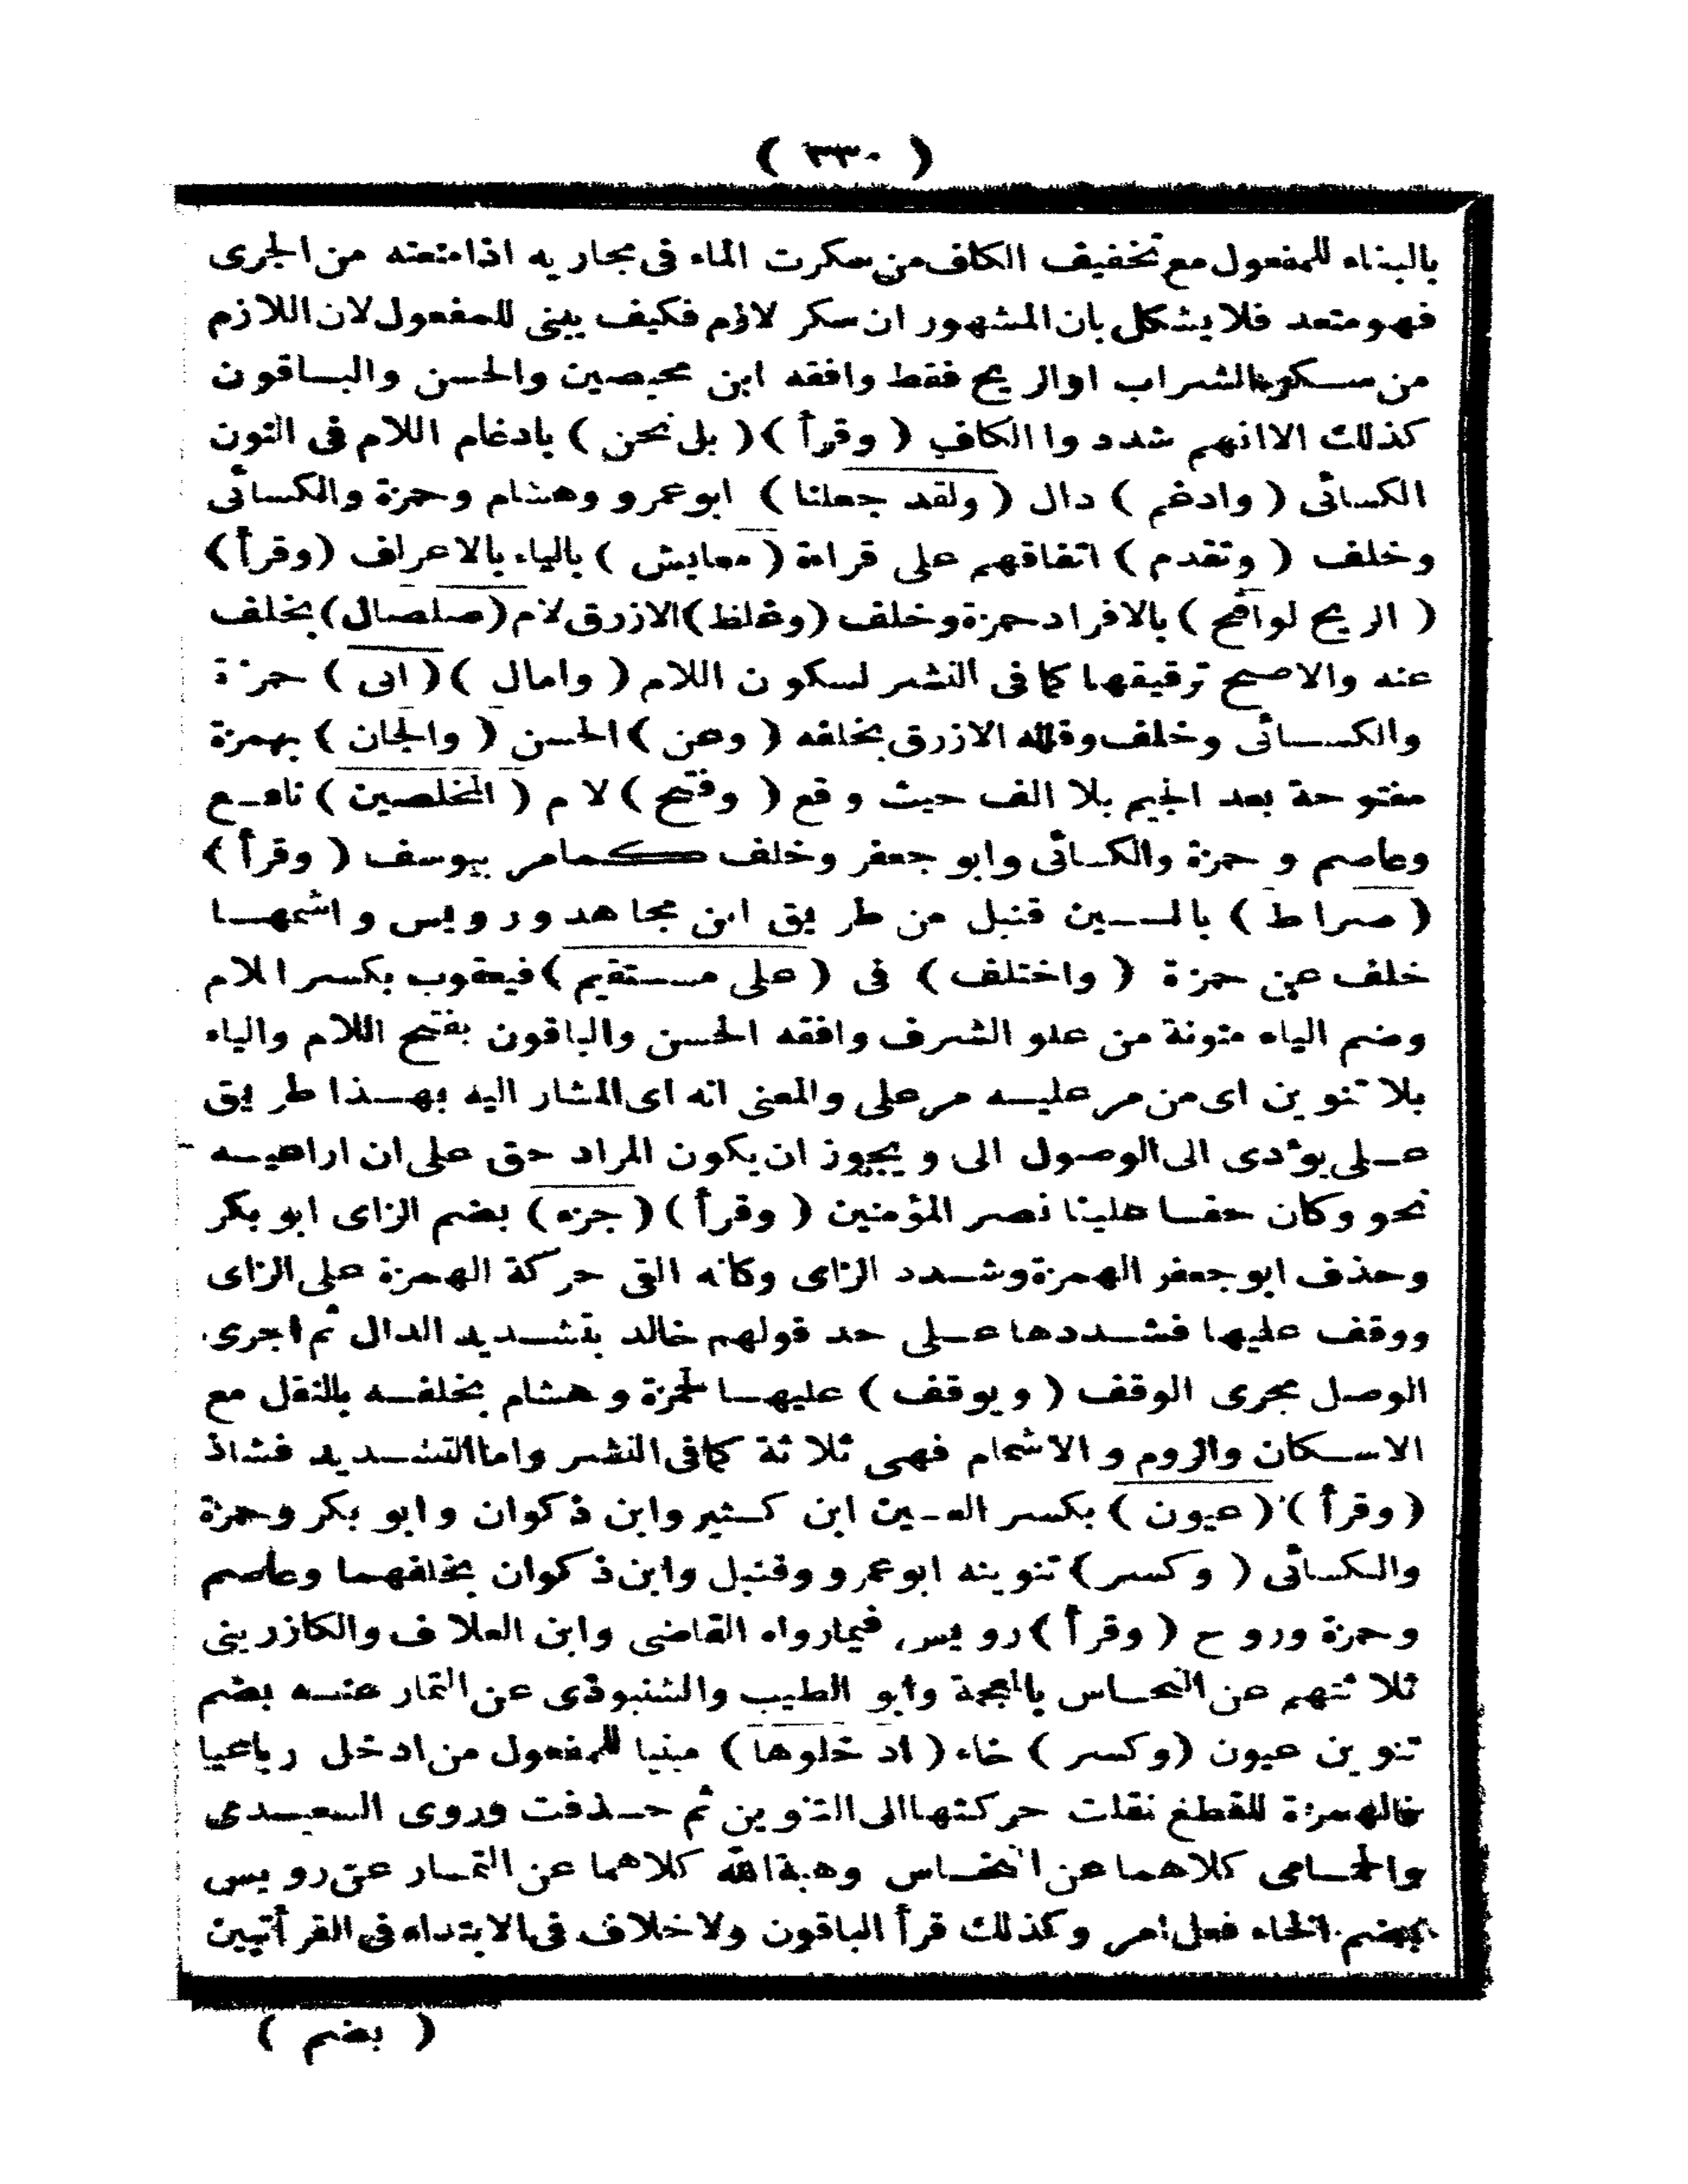 ( ٣٣٠ )
بالبناء للمفعول مع تخفيف الكاف من سكرت الماء فى مجاريه اذا منعته من الجرى
فهو متعد فلا يشكل بان المشهور ان سكر لازم فكيف يبنى للمفعول لان اللازم
من سكر الشراب او الريح فقط وافقه ابن محيصين والحسن والباقون
كذلك الا انهم شددوا الكاف ( وقرأ ) ( بل نحن ) بادغام اللام فى النون
الكسائى ( وادغم ) دال ( ولقد جعلنا ) ابو عمرو وهشام وحمزة والكسائى
وخلف ( وتقدم ) اتفاقهم على قراءة ( معايش ) بالياء بالاعراف ( وقرأ )
( الريح لواقح ) بالافراد حمزة وخلف ( وغلظ ) الازرق لام ( صلصال ) بخلف
عنه والاصح ترقيقها كما فى النشر لسكون اللام ( وامال ) ( ابى ) حمزة
والكسائى وخلف وقلله الازرق بخلفه ( وعن ) الحسن ( والجان ) بهمزة
مفتوحة بعد الجيم بلا الف حيث وقع ( وفتح ) لام ( المخلصين ) نافع
وعاصم و حمزة والكسائى وابو جعفر وخلف كمامر بيوسف ( وقرأ )
( صراط ) بالسين قنبل من طريق ابن مجاهد ورويس واشمها
خلف عن حمزة ( واختلف ) فى ( على مستقيم ) فيعقوب بكسر اللام
وضم الياء منونة من علو الشرف وافقه الحسن والباقون بفتح اللام والياء
بلا تنوين اى من مر عليه مر على والمعنى انه اى المشار اليه بهذا طريق
على يؤدى الى الوصول الى ويجوز ان يكون المراد حق على ان اراعيه
نحو وكان حقا علينا نصر المؤمنين ( وقرأ ) ( جزء ) بضم الزاى ابو بكر
وحذف ابو جعفر الهمزة وشدد الزاى وكانه القى حركة الهمزة على الزاى
ووقف عليها فشددها على حد قولهم خالد بتشديد الدال ثم اجرى
الوصل مجرى الوقف ( ويوقف ) عليها لحمزة وهشام بخلفه بالنقل مع
الاسكان والروم و الاشمام فهى ثلاثة كما فى النشر واما التشديد فشاذ
( وقرأ ) ( عيون ) بكسر العين ابن كثير وابن ذكوان وابو بكر وحمزة
والكسائى ( وكسر ) تنوينه ابو عمرو وقنبل وابن ذكوان بخلفهما وعاصم
وحمزة وروح ( وقرأ ) رويس فيمارواه القاضى وابن العلاف والكازرينى
ثلاثتهم عن النخاس بالمعجمة وابو الطيب والشنبوذى عن التمار عنه بضم
تنوين عيون ( وكسر ) خاء ( ادخلوها ) مبنيا للمفعول من ادخل رباعيا
فالهمزة للقطع نقلت حركتها الى التنوين ثم حذفت وروى السعيدى
والحمامى كلاهما عن النخاس وهبة الله كلاهما عن التمار عن رويس
بضم الخاء فعل امر وكذلك قرأ الباقون ولا خلاف فى الابتداء فى القرأتين
( بضم )